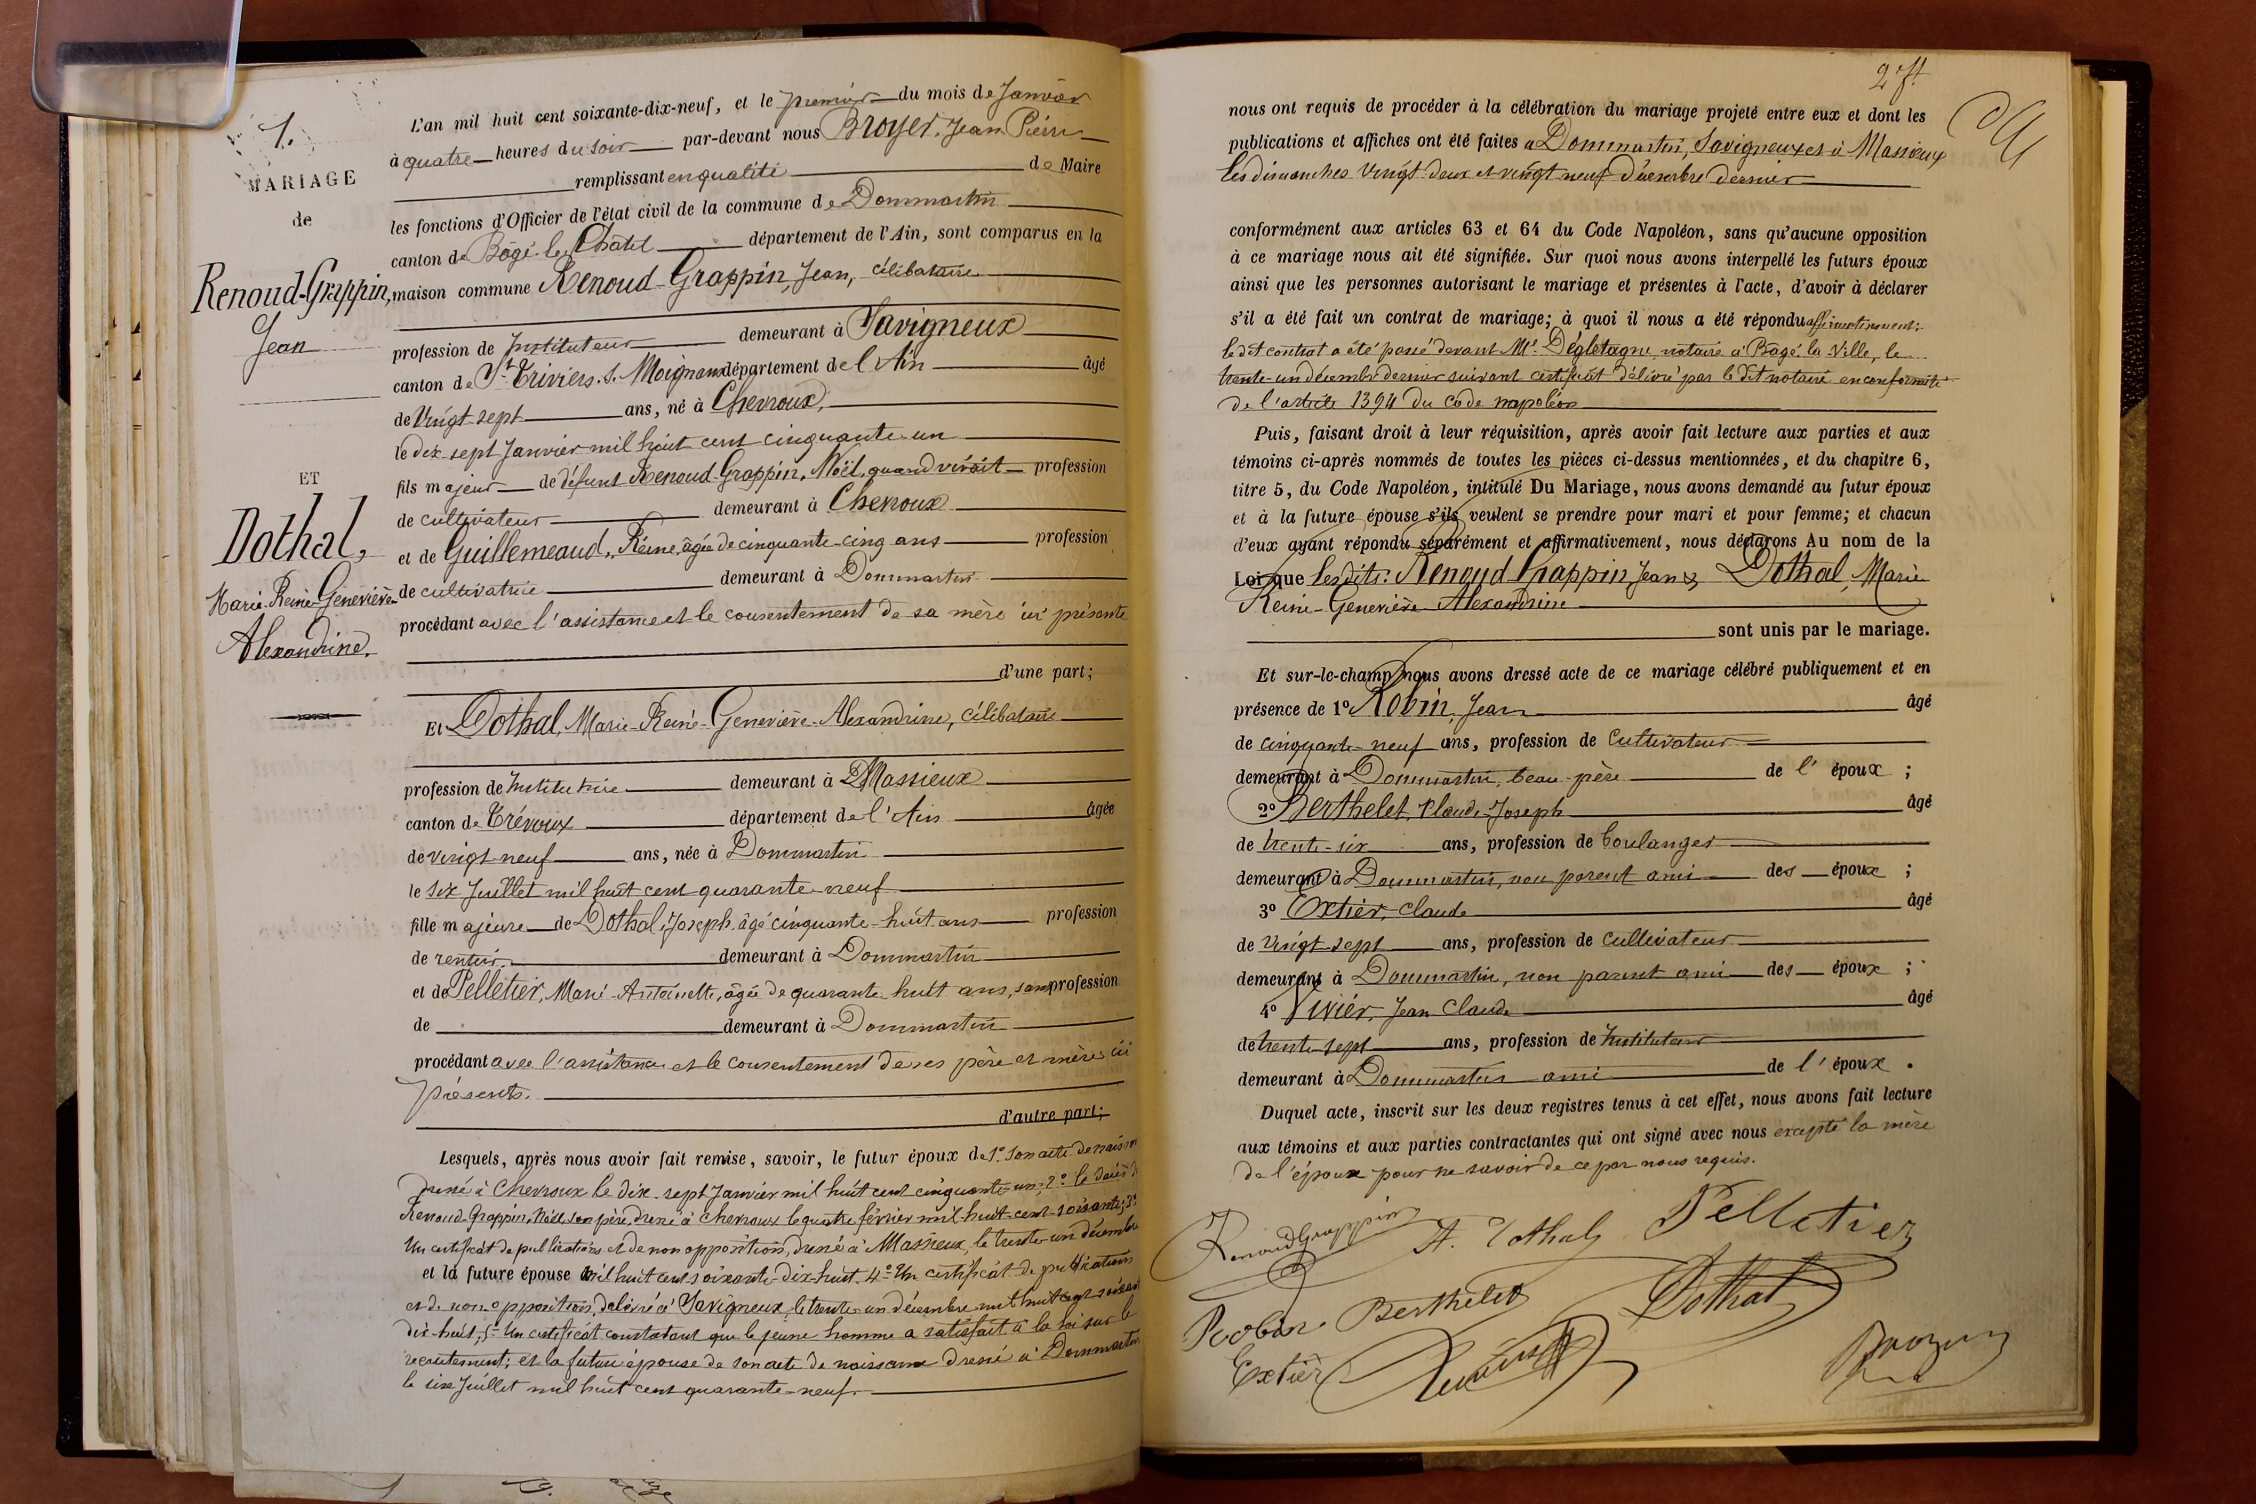 1.
MARIAGE
de
Renoud-Grappin,
Jean
ET
Dothal,
Marie-Reine-Geneviève-
Alexandrine.
L'an mil huit cent soixante-dix-neuf, et le premier du mois de Janvier
à quatre heures du soir par-devant nous Broyer, Jean Pierre
remplissant en qualité de Maire
les fonctions d'Officier de l'état civil de la commune de Dommartin
canton de Bâgé-le-Châtel département de l'Ain, sont comparus en la
maison commune Renoud-Grappin, Jean, célibataire
profession de Instituteur demeurant à Savigneux
canton de St Triviers. s. Moignans département de l'Ain âgé
de vingt-sept ans, né à Chevroux,
le dix-sept Janvier mil huit cent cinquante-un
fils majeur de défunt Renoud-Grappin, Noël, quand vivait profession
de cultivateur demeurant à Chevroux
et de Guillemeaud, Reine, âgée de cinquante-cinq ans profession
de cultivatrice demeurant à Dommartin
procédant avec l'assistance et le consentement de sa mère ici présente
d'une part;
Et Dothal, Marie-Reine-Geneviève-Alexandrine, célibataire
profession de Institutrice demeurant à Massieux
canton de Trévoux département de l'Ain âgée
de vingt-neuf ans, née à Dommartin
le six Juillet mil huit cent quarante-neuf
fille majeure de Dothal, Joseph âgé cinquante-huit ans profession
de rentier. demeurant à Dommartin
et de Pelletier, Marie-Antoinette, âgée de quarante-huit ans, sans profession
de demeurant à Dommartin
procédant avec l'assistance et le consentement de ses père et mère ici
présents.
d'autre part;
Lesquels, après nous avoir fait remise, savoir, le futur époux de 1° son acte de naissance
dressé à Chevroux le dix-sept Janvier mil huit cent cinquante-un; 2° le décès de
Renoud-Grappin, Noël son père, dressé à Chevroux le quatre février mil-huit-cent-soixante; 3°
Un certificat de publications et de non opposition, dressé à Massieux, le trente-un décembre
et la future épouse mil huit cent soixante-dix-huit. 4° Un certificat de publications
et de non-opposition, délivré à Savigneux, le trente-un décembre mil huit cent soixante
dix-huit; 5° Un certificat constatant que le jeune homme a satisfait à la loi sur le
recrutement; et la future épouse de son acte de naissance dressé à Dommartin
le six Juillet mil huit cent quarante-neuf.
2 ft
nous ont requis de procéder à la célébration du mariage projeté entre eux et dont les
publications et affiches ont été faites à Dommartin, Savigneux et à Massieux
les dimanches vingt-deux et vingt-neuf Décembre dernier
conformément aux articles 63 et 64 du Code Napoléon, sans qu'aucune opposition
à ce mariage nous ait été signifiée. Sur quoi nous avons interpellé les futurs époux
ainsi que les personnes autorisant le mariage et présentes à l'acte, d'avoir à déclarer
s'il a été fait un contrat de mariage; à quoi il nous a été répondu affirmativement;
le dit contrat a été passé devant Me Dégletagne, notaire à Bâgé-la-Ville, le
trente-un décembre dernier suivant certificat délivré par le dit notaire en conformité
de l'article 1394 du code napoléon
Puis, faisant droit à leur réquisition, après avoir fait lecture aux parties et aux
témoins ci-après nommés de toutes les pièces ci-dessus mentionnées, et du chapitre 6,
titre 5, du Code Napoléon, intitulé Du Mariage, nous avons demandé au futur époux
et à la future épouse s'ils veulent se prendre pour mari et pour femme; et chacun
d'eux ayant répondu séparément et affirmativement, nous déclarons Au nom de la
Loi que lesdits: Renoud-Grappin Jean & Dothal, Marie
Reine-Geneviève Alexandrine
sont unis par le mariage.
Et sur-le-champ nous avons dressé acte de ce mariage célébré publiquement et en
présence de 1° Robin, Jean âgé
de cinquante-neuf ans, profession de Cultivateur
demeurant à Dommartin, beau-père de l'époux ;
2° Berthelet, Claude-Joseph âgé
de trente-six ans, profession de boulanger
demeurant à Dommartin, non parent ami des époux ;
3° Extier, Claude âgé
de vingt-sept ans, profession de cultivateur
demeurant à Dommartin, non parent ami des époux ;
4° Vivier, Jean Claude âgé
de trente-sept ans, profession de Instituteur
demeurant à Dommartin ami de l'époux .
Duquel acte, inscrit sur les deux registres tenus à cet effet, nous avons fait lecture
aux témoins et aux parties contractantes qui ont signé avec nous excepté la mère
de l'époux pour ne savoir de ce par nous requis.
Renoud Grappin A. Dothal Pelletier
Robin Berthelet Dothal
Extier Vivier Broyer